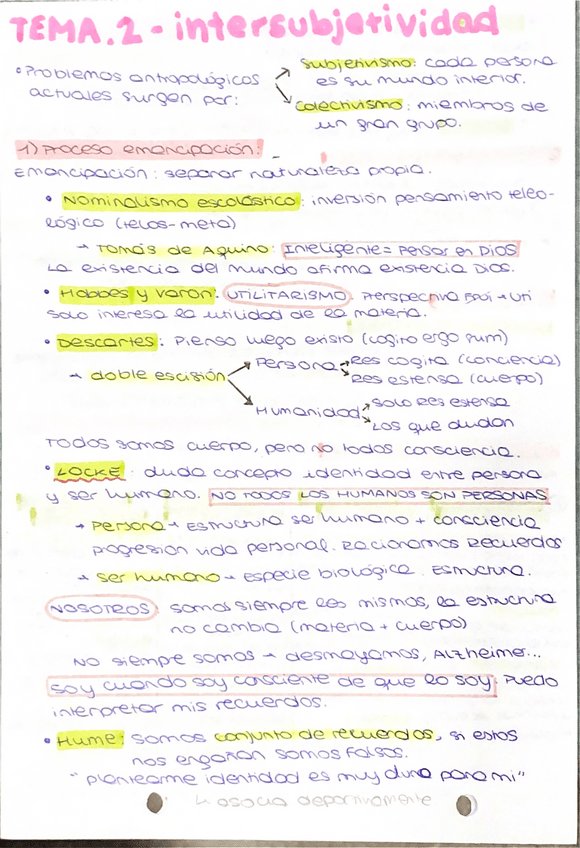 TEMA.2 - intersubjetividad
• Problemas antropológicos actuales surgen por:
Subjetivismo: cada persona es su mundo interior.
Colectivismo: miembros de un gran grupo.
1) Proceso emancipación:
Emancipación: separar naturaleza propia.
• Nominalismo escolástico: inversión pensamiento teleo-
lógico (telos-meta)
→ Tomás de Aquino: Inteligente = Pensar en Dios
La existencia del mundo afirma existencia Dios.
• Hobbes y Varon: UTILITARISMO. Perspectiva → uti
solo interesa la utilidad de la materia.
• Descartes: Pienso luego existo (cogito ergo sum)
→ doble escisión
Persona
Res cogita (conciencia)
Res estensa (cuerpo)
Humanidad
Solo res estensa
Los que dudan
Todos somos cuerpo, pero no todos consciencia.
• LOCKE: duda concepto identidad entre persona
y ser humano. NO TODOS LOS HUMANOS SON PERSONAS
→ Persona → Estructura ser humano + consciencia
progresion vida personal. Racionamos recuerdos
→ Ser humano → Especie biológica. Estructura.
NOSOTROS somos siempre los mismos, la estructura
no cambia (materia + cuerpo)
No siempre somos → desmayamos, Alzheimer...
Soy cuando soy consciente de que lo soy. Puedo
interpretar mis recuerdos.
• Hume: Somos conjunto de recuerdos, si estos
nos engañan somos falsos.
"Plantearme identidad es muy duro para mi"
↳ asocia deportivamente